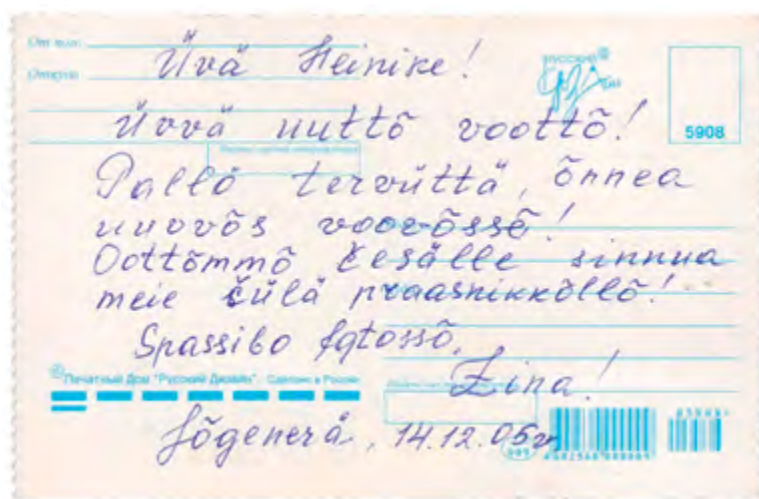 От кого
Откуда
Üvä Heinike!
РУССКИЙ
5908
Üvvä uuttõ voottõ!
Pallo tervüttä, õnnea
uuvvõs voovvõssõ!
Oottõmmõ česälle sinnua
meie čülä praasnikkõllõ!
Spassibo fotossõ.
© Печатный Дом "Русский Дизайн". Сделано в России
Zina!
Jõgenerä, 14.12.05г